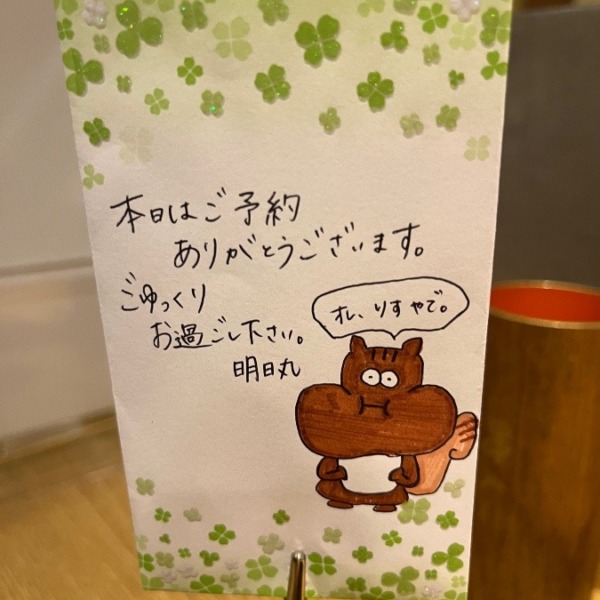 本日はご予約
ありがとうございます。
ごゆっくり
お過ごし下さい。
明日丸
オレ、りすやで。